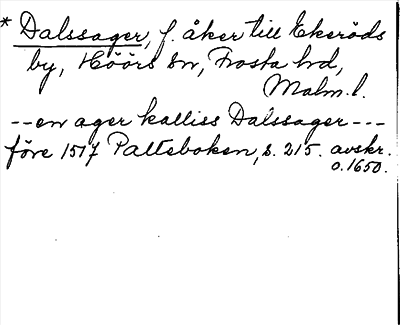 * Dalssager, f. åker till Ekeröds
by, Höörs sn, Frosta hd,
Malm.l.
--en ager kalliss Dalssager---
före 1517 Palteboken, s. 215. avskr.
o.1650.